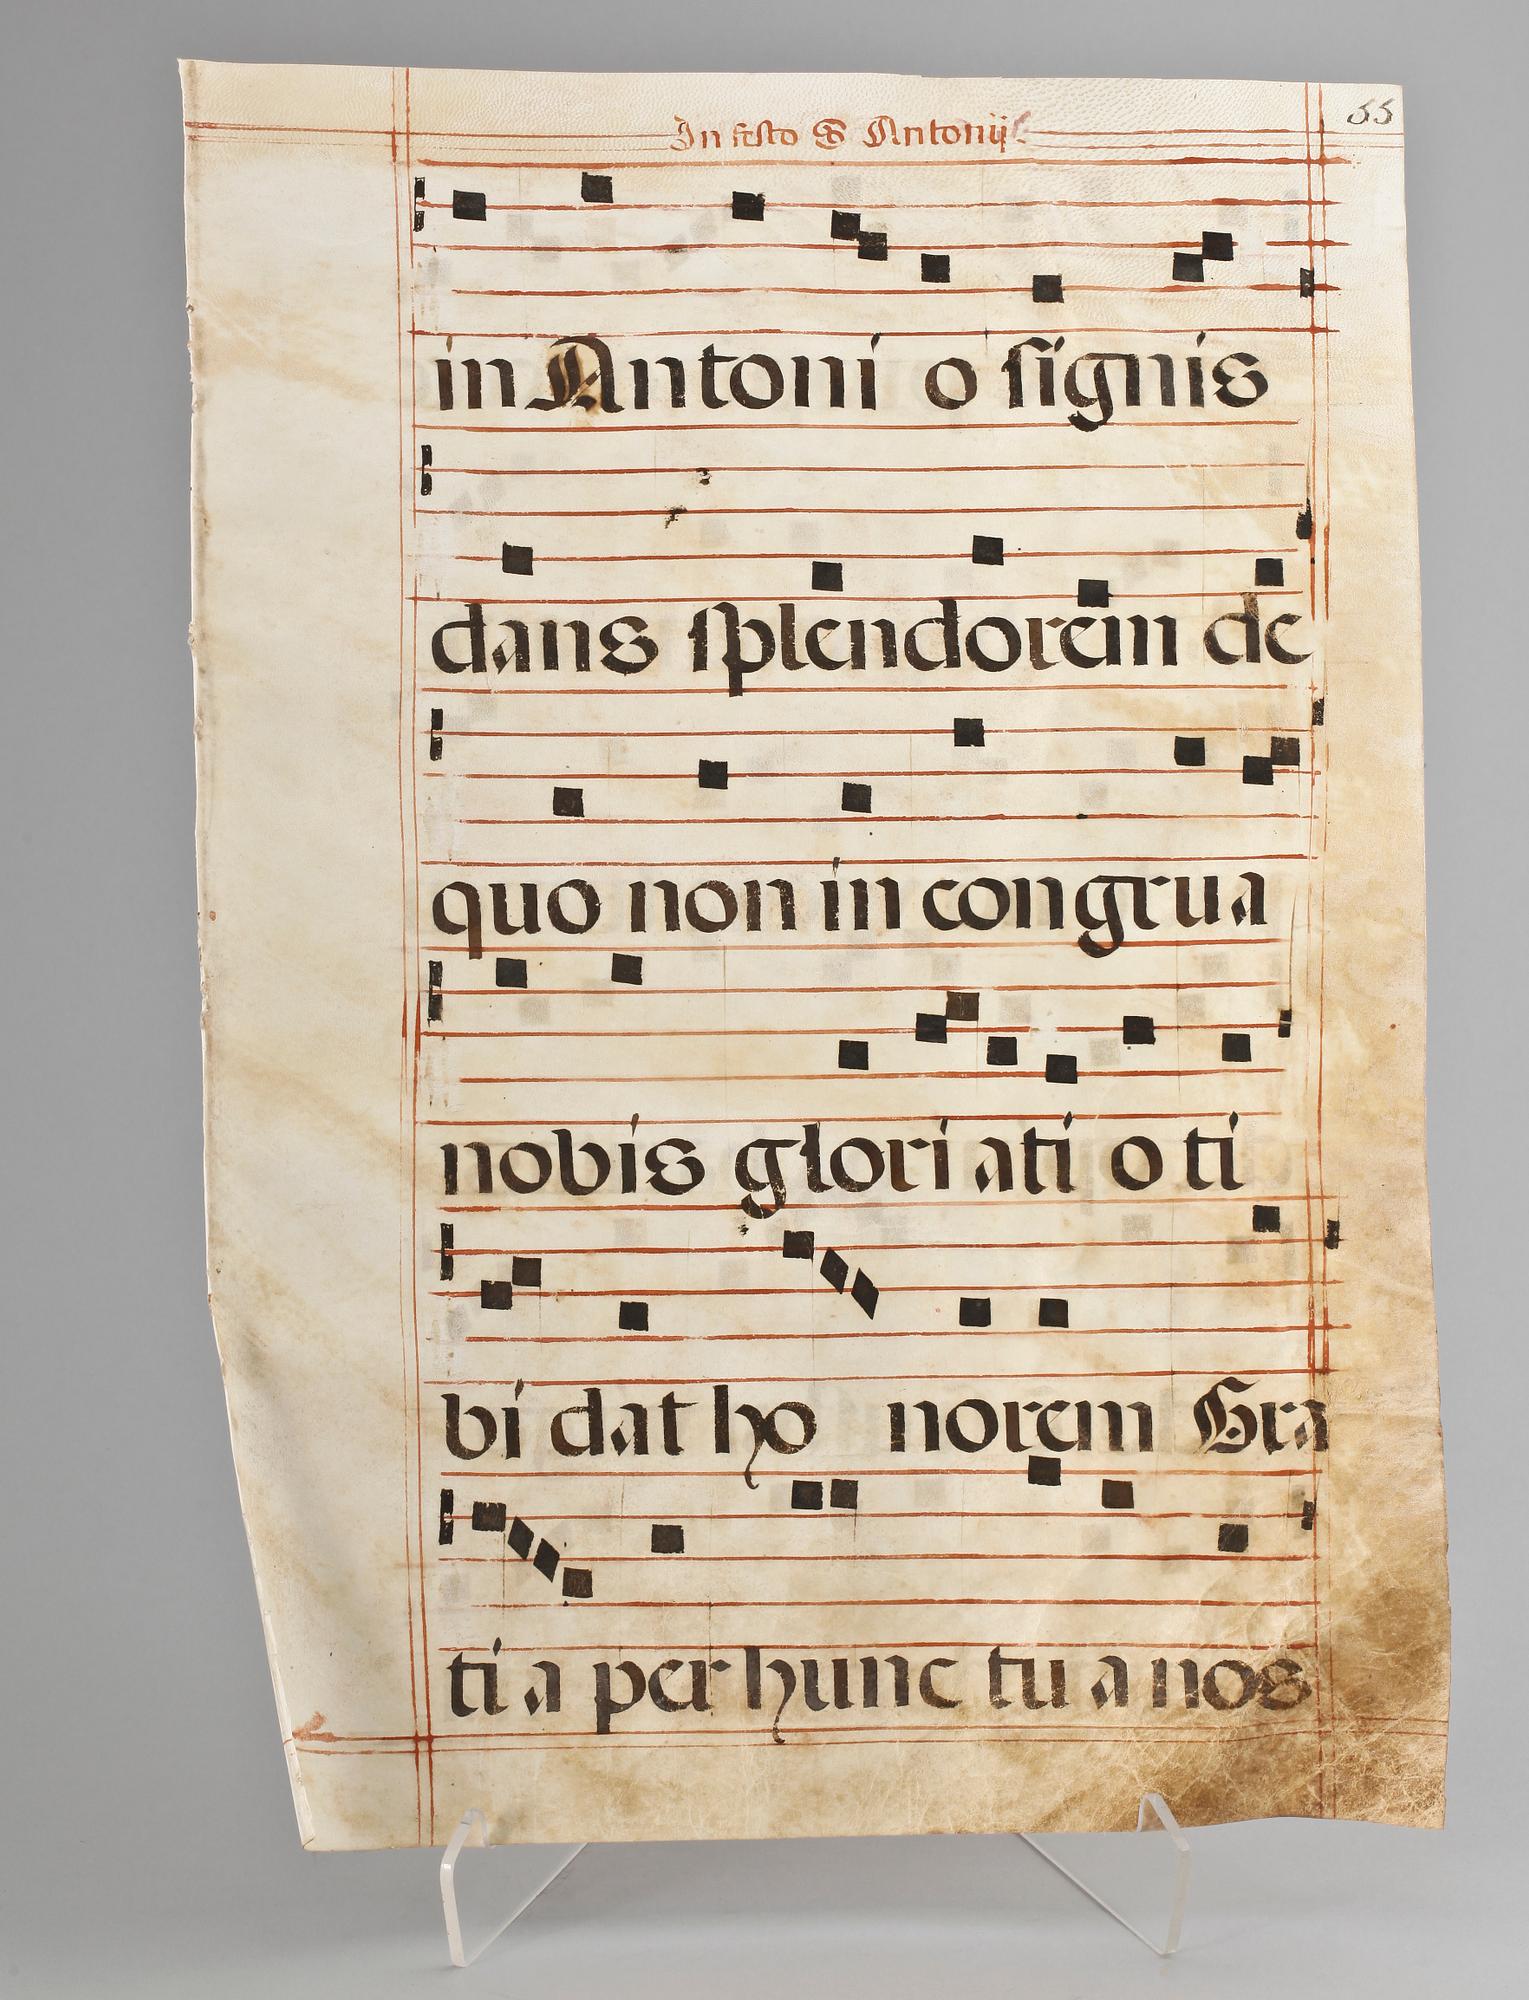 55
In festo S Antonij
in Antoni o signis
dans splendorem de
quo non in congrua
nobis glori ati o ti
bi dat ho norem Gra
ti a per hunc tu a nos